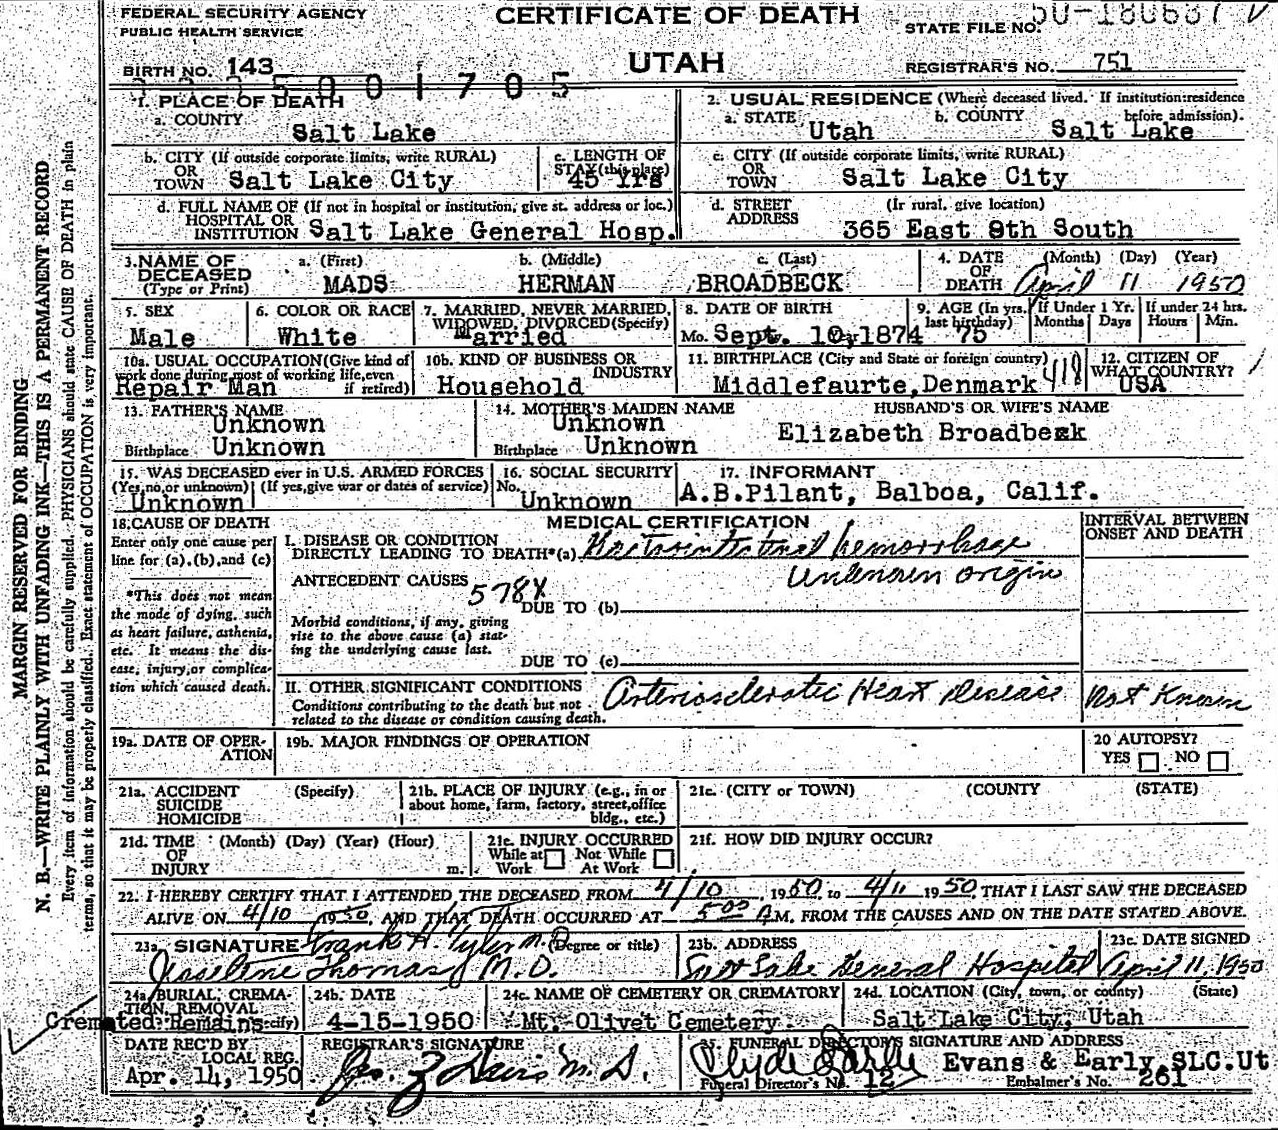 FEDERAL SECURITY AGENCY
PUBLIC HEALTH SERVICE
CERTIFICATE OF DEATH
STATE FILE NO.
BIRTH NO. 143
UTAH
REGISTRAR'S NO. 751
1. PLACE OF DEATH
a. COUNTY
Salt Lake
2. USUAL RESIDENCE (Where deceased lived. If institution: residence before admission).
a. STATE Utah b. COUNTY Salt Lake
b. CITY (If outside corporate limits, write RURAL)
OR
TOWN Salt Lake City
c. LENGTH OF
STAY (this place)
45 Yrs
c. CITY (If outside corporate limits, write RURAL)
OR
TOWN Salt Lake City
d. FULL NAME OF (If not in hospital or institution, give st. address or loc.)
HOSPITAL OR
INSTITUTION Salt Lake General Hosp.
d. STREET (If rural, give location)
ADDRESS 365 East 9th South
3. NAME OF
DECEASED
(Type or Print)
a. (First) b. (Middle) c. (Last)
MADS HERMAN BROADBECK
4. DATE (Month) (Day) (Year)
OF
DEATH April 11 1950
5. SEX
Male
6. COLOR OR RACE
White
7. MARRIED, NEVER MARRIED,
WIDOWED, DIVORCED (Specify)
Married
8. DATE OF BIRTH
Mo. Sept. 10, 1874
9. AGE (In yrs. last birthday)
75
If Under 1 Yr.
Months Days
If under 24 hrs.
Hours Min.
10a. USUAL OCCUPATION (Give kind of
work done during most of working life, even
if retired)
Repair Man
10b. KIND OF BUSINESS OR
INDUSTRY
Household
11. BIRTHPLACE (City and State or foreign country)
Middlefaurte, Denmark
12. CITIZEN OF
WHAT COUNTRY?
USA
13. FATHER'S NAME
Unknown
Birthplace Unknown
14. MOTHER'S MAIDEN NAME
Unknown
Birthplace Unknown
HUSBAND'S OR WIFE'S NAME
Elizabeth Broadbeck
15. WAS DECEASED ever in U.S. ARMED FORCES
(Yes, no, or unknown) (If yes, give war or dates of service)
Unknown
16. SOCIAL SECURITY
No.
Unknown
17. INFORMANT
A.B.Pilant, Balboa, Calif.
18. CAUSE OF DEATH
Enter only one cause per
line for (a), (b), and (c)
*This does not mean
the mode of dying, such
as heart failure, asthenia,
etc. It means the dis-
ease, injury, or complica-
tion which caused death.
MEDICAL CERTIFICATION
INTERVAL BETWEEN
ONSET AND DEATH
I. DISEASE OR CONDITION
DIRECTLY LEADING TO DEATH*(a) hemorrhage
Unknown origin
ANTECEDENT CAUSES
578X
DUE TO (b)
Morbid conditions, if any, giving
rise to the above cause (a) stat-
ing the underlying cause last.
DUE TO (c)
II. OTHER SIGNIFICANT CONDITIONS
Conditions contributing to the death but not
related to the disease or condition causing death.
Arteriosclerotic Heart Disease
Not Known
19a. DATE OF OPER-
ATION
19b. MAJOR FINDINGS OF OPERATION
20 AUTOPSY?
YES NO
21a. ACCIDENT (Specify)
SUICIDE
HOMICIDE
21b. PLACE OF INJURY (e.g., in or
about home, farm, factory, street, office
bldg., etc.)
21c. (CITY or TOWN) (COUNTY (STATE)
21d. TIME (Month) (Day) (Year) (Hour)
OF
INJURY m.
21e. INJURY OCCURRED
While at Not While
Work At Work
21f. HOW DID INJURY OCCUR?
22. I HEREBY CERTIFY THAT I ATTENDED THE DECEASED FROM 4/10 1950 to 4/11 1950, THAT I LAST SAW THE DECEASED
ALIVE ON 4/10 1950, AND THAT DEATH OCCURRED AT 5:00 A M. FROM THE CAUSES AND ON THE DATE STATED ABOVE.
23a. SIGNATURE Frank H. Tyler M.D. (Degree or title)
Thomas M.D.
23b. ADDRESS
Salt Lake General Hospital
23c. DATE SIGNED
April 11, 1950
24a. BURIAL, CREMA-
TION, REMOVAL
Cremated: Remains
24b. DATE
4-15-1950
24c. NAME OF CEMETERY OR CREMATORY
Mt. Olivet Cemetery.
24d. LOCATION (City, town, or county) (State)
Salt Lake City, Utah
DATE REC'D BY
LOCAL REG.
Apr. 14, 1950
REGISTRAR'S SIGNATURE
M.D.
25. FUNERAL DIRECTOR'S SIGNATURE AND ADDRESS
Clyde Early
Evans & Early SLC.Ut
Funeral Director's No. 12
Embalmer's No. 261
MARGIN RESERVED FOR BINDING
N. B.—WRITE PLAINLY WITH UNFADING INK—THIS IS A PERMANENT RECORD
Every item of information should be carefully supplied. PHYSICIANS should state CAUSE OF DEATH in plain
terms, so that it may be properly classified. Exact statement of OCCUPATION is very important.